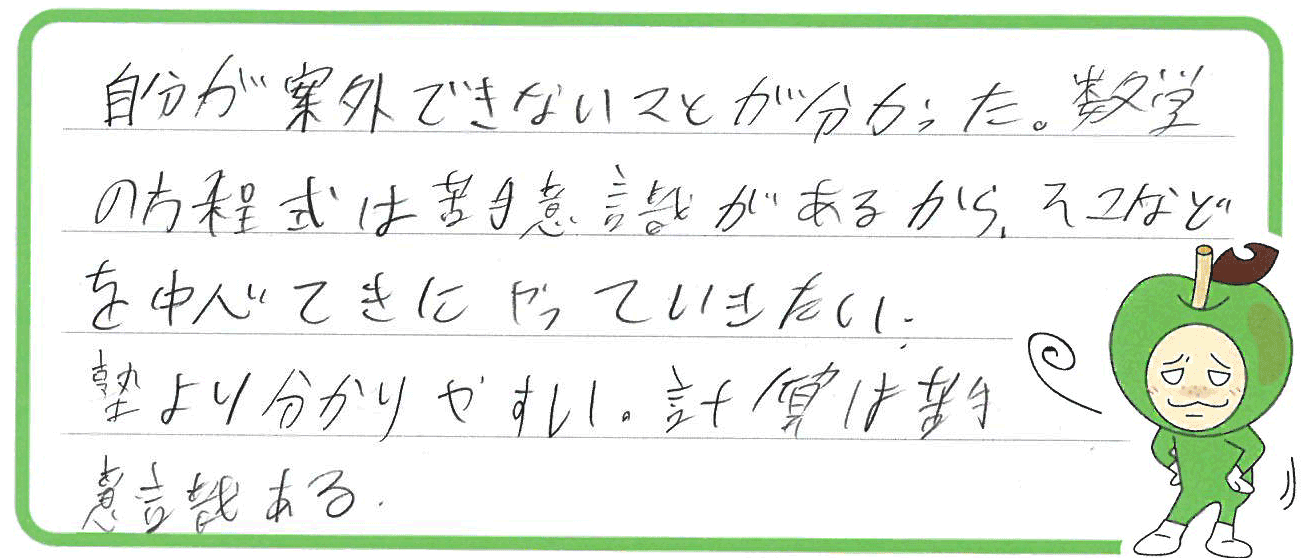 自分が案外できないことが分かった。数学
の方程式は苦手意識があるから、そこなど
を中心てきにやっていきたい.
塾より分かりやすい。計算は苦手
意識ある.